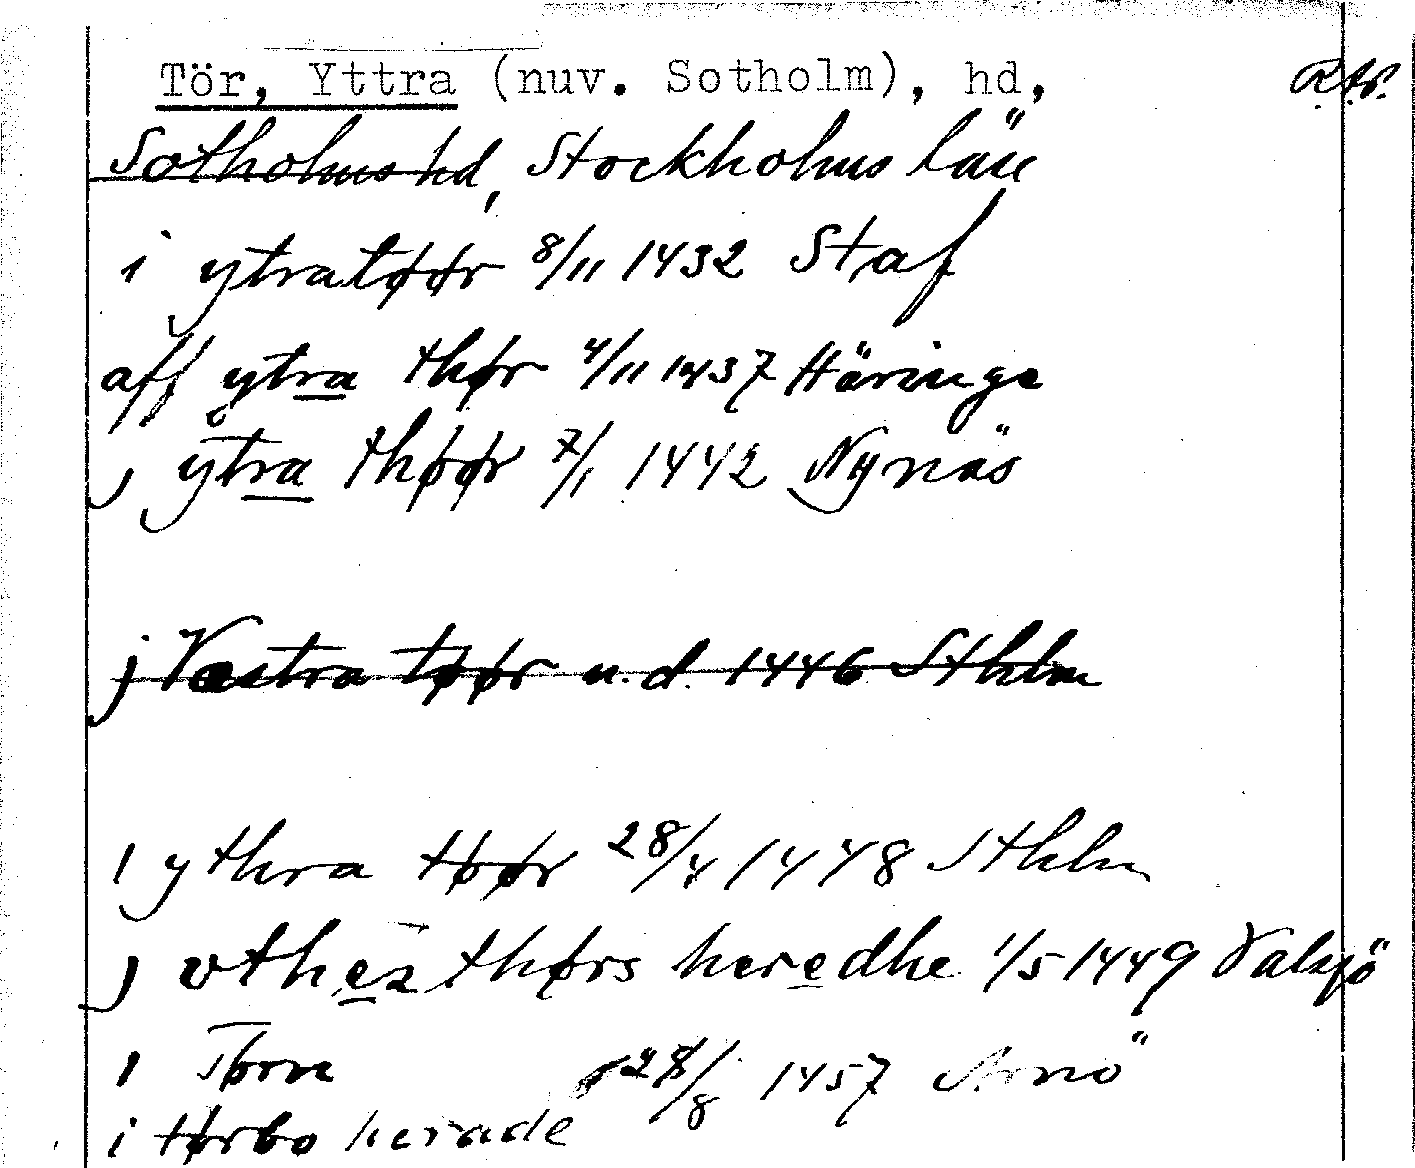 Tör, Yttra (nuv. Sotholm), hd, R.A.P.
Sotholms hd, Stockholms län
i ytratøør 8/11 1432 Staf
aff ytra thør 4/11 1437 Häringe
j ytra thøør 7/1 1442 Nynäs
j Væstra tøør u.d. 1446 Sthlm
i ythra tøør 28/4 1448 Sthlm
j vthez thørs heredhe 1/5 1449 Valsjö
i Tørn 28/8 1457 Arnö
i tørbo herade